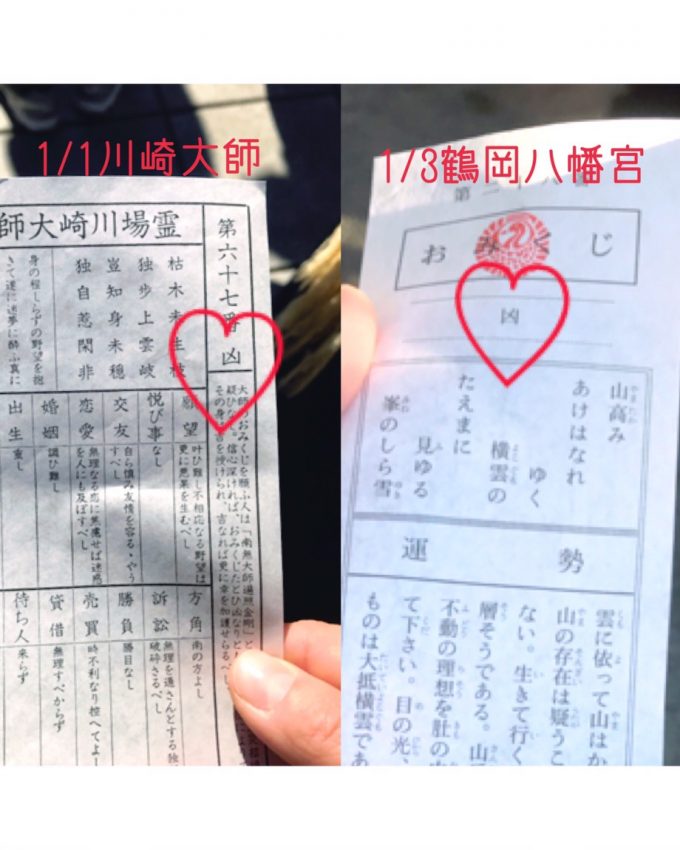 1/1川崎大師
霊場川崎大師
第六十七番 凶
大師のおみくじを願ふ人は「南無大師遍照金剛」と
疑ひな 信心深ければ、おみくじたとひ凶なりと
その身 吉を授けられ、吉なれば更に幸を加護せらるべ
枯木未生枝
独歩上雲岐
豈知身未穏
独自惹閑非
身の程しらずの野望を抱
きて遂に迷夢に酔ふ真に
願望 叶ひ難し不相応なる野望は
更に悪果を生むべし
悦び事 なし
交友 自ら慎み友情を容る・やう
すべし
恋愛 無理なる恋に焦慮せば迷惑
を人にも及ぼすべし
婚姻 調ひ難し
出生 重し
方角 南の方よし
訴訟 無理を通さんとする独
破砕さるべし
勝負 勝目なし
売買 時不利なり控へてよ
貸借 無理すべからず
待ち人 来らず
1/3鶴岡八幡宮
おみくじ
凶
山高み
あけはなれ
ゆく
横雲の
たえまに
見ゆる
峯のしら雪
運勢
雲に依って山はか
山の存在は疑うこ
ない。生きて行く
層そうである。山
不動の理想を肚の
て下さい。目の光、
ものは大抵横雲であ